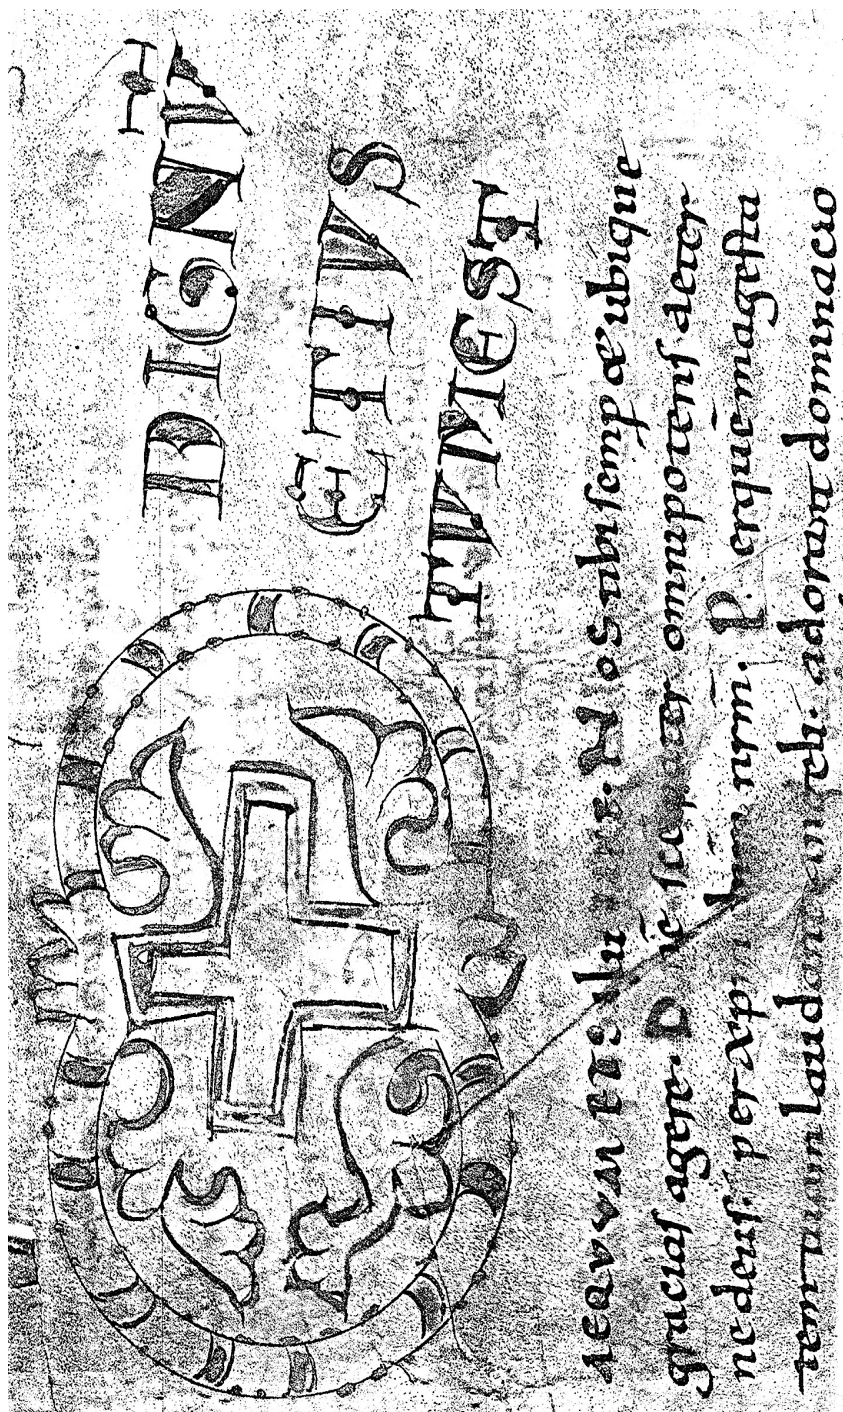 DIGNV
ETIVS
TVMEST
AEQVVM ET SAlu TARE. Nos tibi semp & ubique
gracias agere. Dnē scē pater omnipotens aeter
ne deus. per xpm dnm nrm̄. P erquē magesta
tem tuam laudant angeli. adorant dominacio